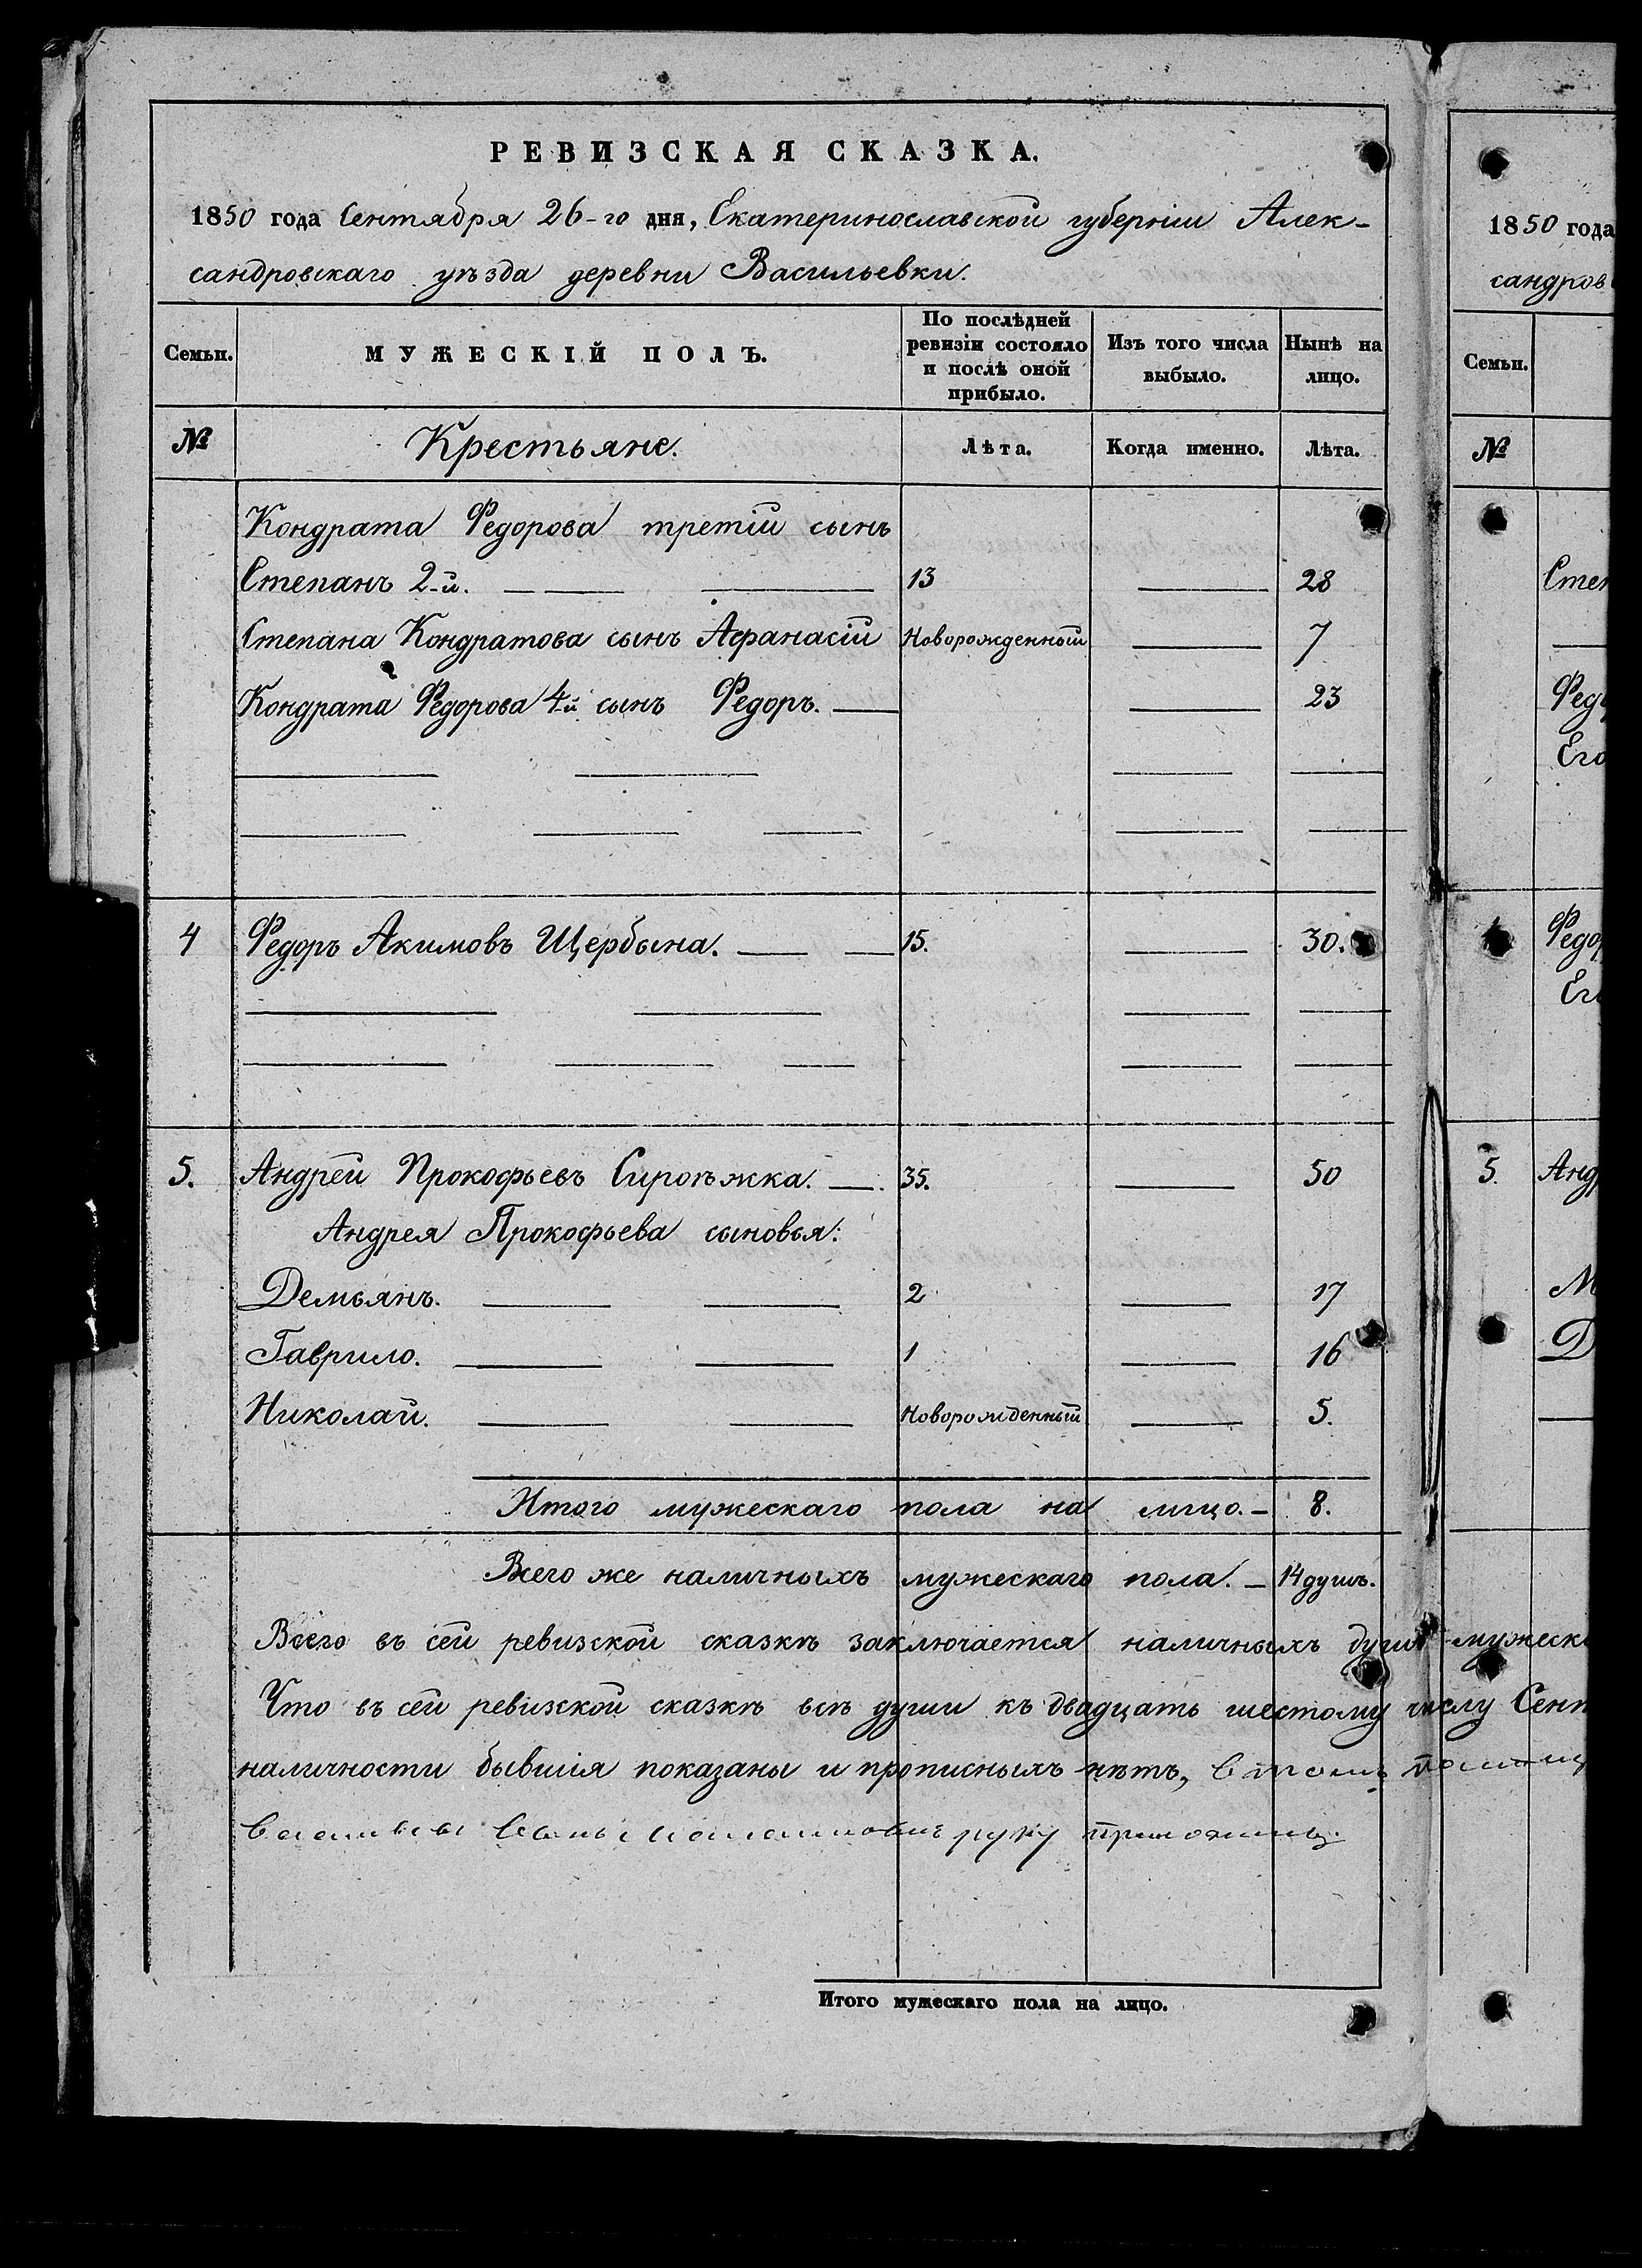 РЕВИЗСКАЯ СКАЗКА.
1850 года Сентября 26-го дня, Екатеринославской губерніи Алек-
сандровскаго уѣзда деревни Васильевки.
Семьи. МУЖЕСКІЙ ПОЛЪ. По послѣдней ревизіи состояло и послѣ оной прибыло. Изъ того числа выбыло. Нынѣ на лицо.
№ Крестьяне. Лѣта. Когда именно. Лѣта.
Кондрата Федорова третій сынъ
Степанъ 2-й. 13 28
Степана Кондратова сынъ Афанасій Новорожденный 7
Кондрата Федорова 4й сынъ Федоръ. 23
4 Федоръ Акимовъ Щербына. 15. 30.
5. Андрей Прокофьевъ Сироѣжка. 35. 50
Андрея Прокофьева сыновья:
Демьянъ. 2 17
Гаврило. 1 16
Николай. Новорожденный 5.
Итого мужескаго пола на лицо. — 8.
Всего же наличныхъ мужескаго пола. — 14 душъ.
Всего въ сей ревизской сказкѣ заключается наличныхъ душъ мужеск
Что въ сей ревизской сказкѣ всѣ души къ двадцать шестому числу Сент
наличности бывшія показаны и прописныхъ нѣтъ,
руку
Итого мужескаго пола на лицо.
1850 года
сандров
Семьи.
№
Степ
Федо
Его
4 Федор
Ег
5. Анд
М
Д